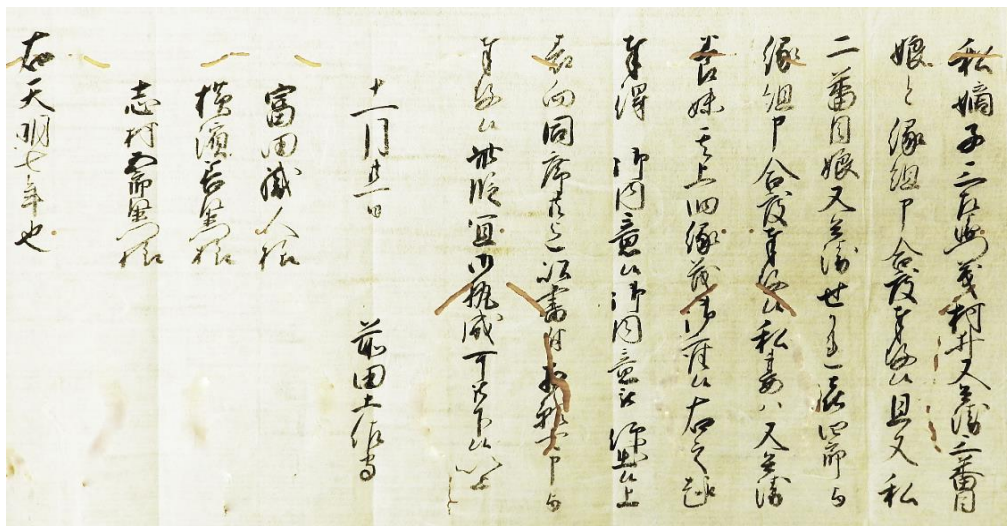 私嫡子三左衛門義村井又兵衛二番目
娘と縁組申合度奉存候且又私
二番目娘又兵衛せかれ 四郎与
縁組申合度奉存候私妻ハ又兵衛
養妹 其上旧縁茂御座候右之趣
奉得 御内意候御内意被 候上
表向同席共迄以書附 申与
奉存候此段宜御執成可被下候以上
十一月 日
前田土佐守
富田織人様
横濱善左衛門様
志村五郎左衛門様
右天明七年也